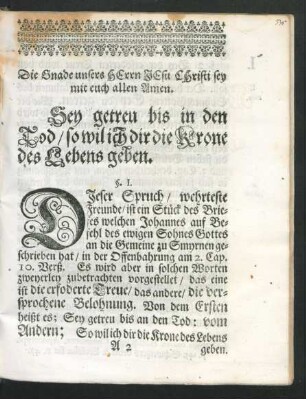 Die Gnade unsers HErrn JEsu CHristi sey
mit euch allen Amen.
Sey getreu bis in den
Tod/ so wil ich dir die Krone
des Lebens geben.
§. I.
DJeser Spruch/ wehrteste
Freunde/ ist ein Stück des Brie-
fes welchen Johannes auf Be-
fehl des ewigen Sohnes Gottes
an die Gemeine zu Smyrnen ge-
schrieben hat/ in der Offenbahrung am 2. Cap.
10. Verß. Es wird aber in solchen Worten
zweyerley zubetrachten vorgestellet/ das eine
ist die erfoderte Treue/ das andere/ die ver-
sprochene Belohnung. Von dem Ersten
heißt es: Sey getreu bis an den Tod: vom
Andern; So wil ich dir die Krone des Lebens
A 2 geben.